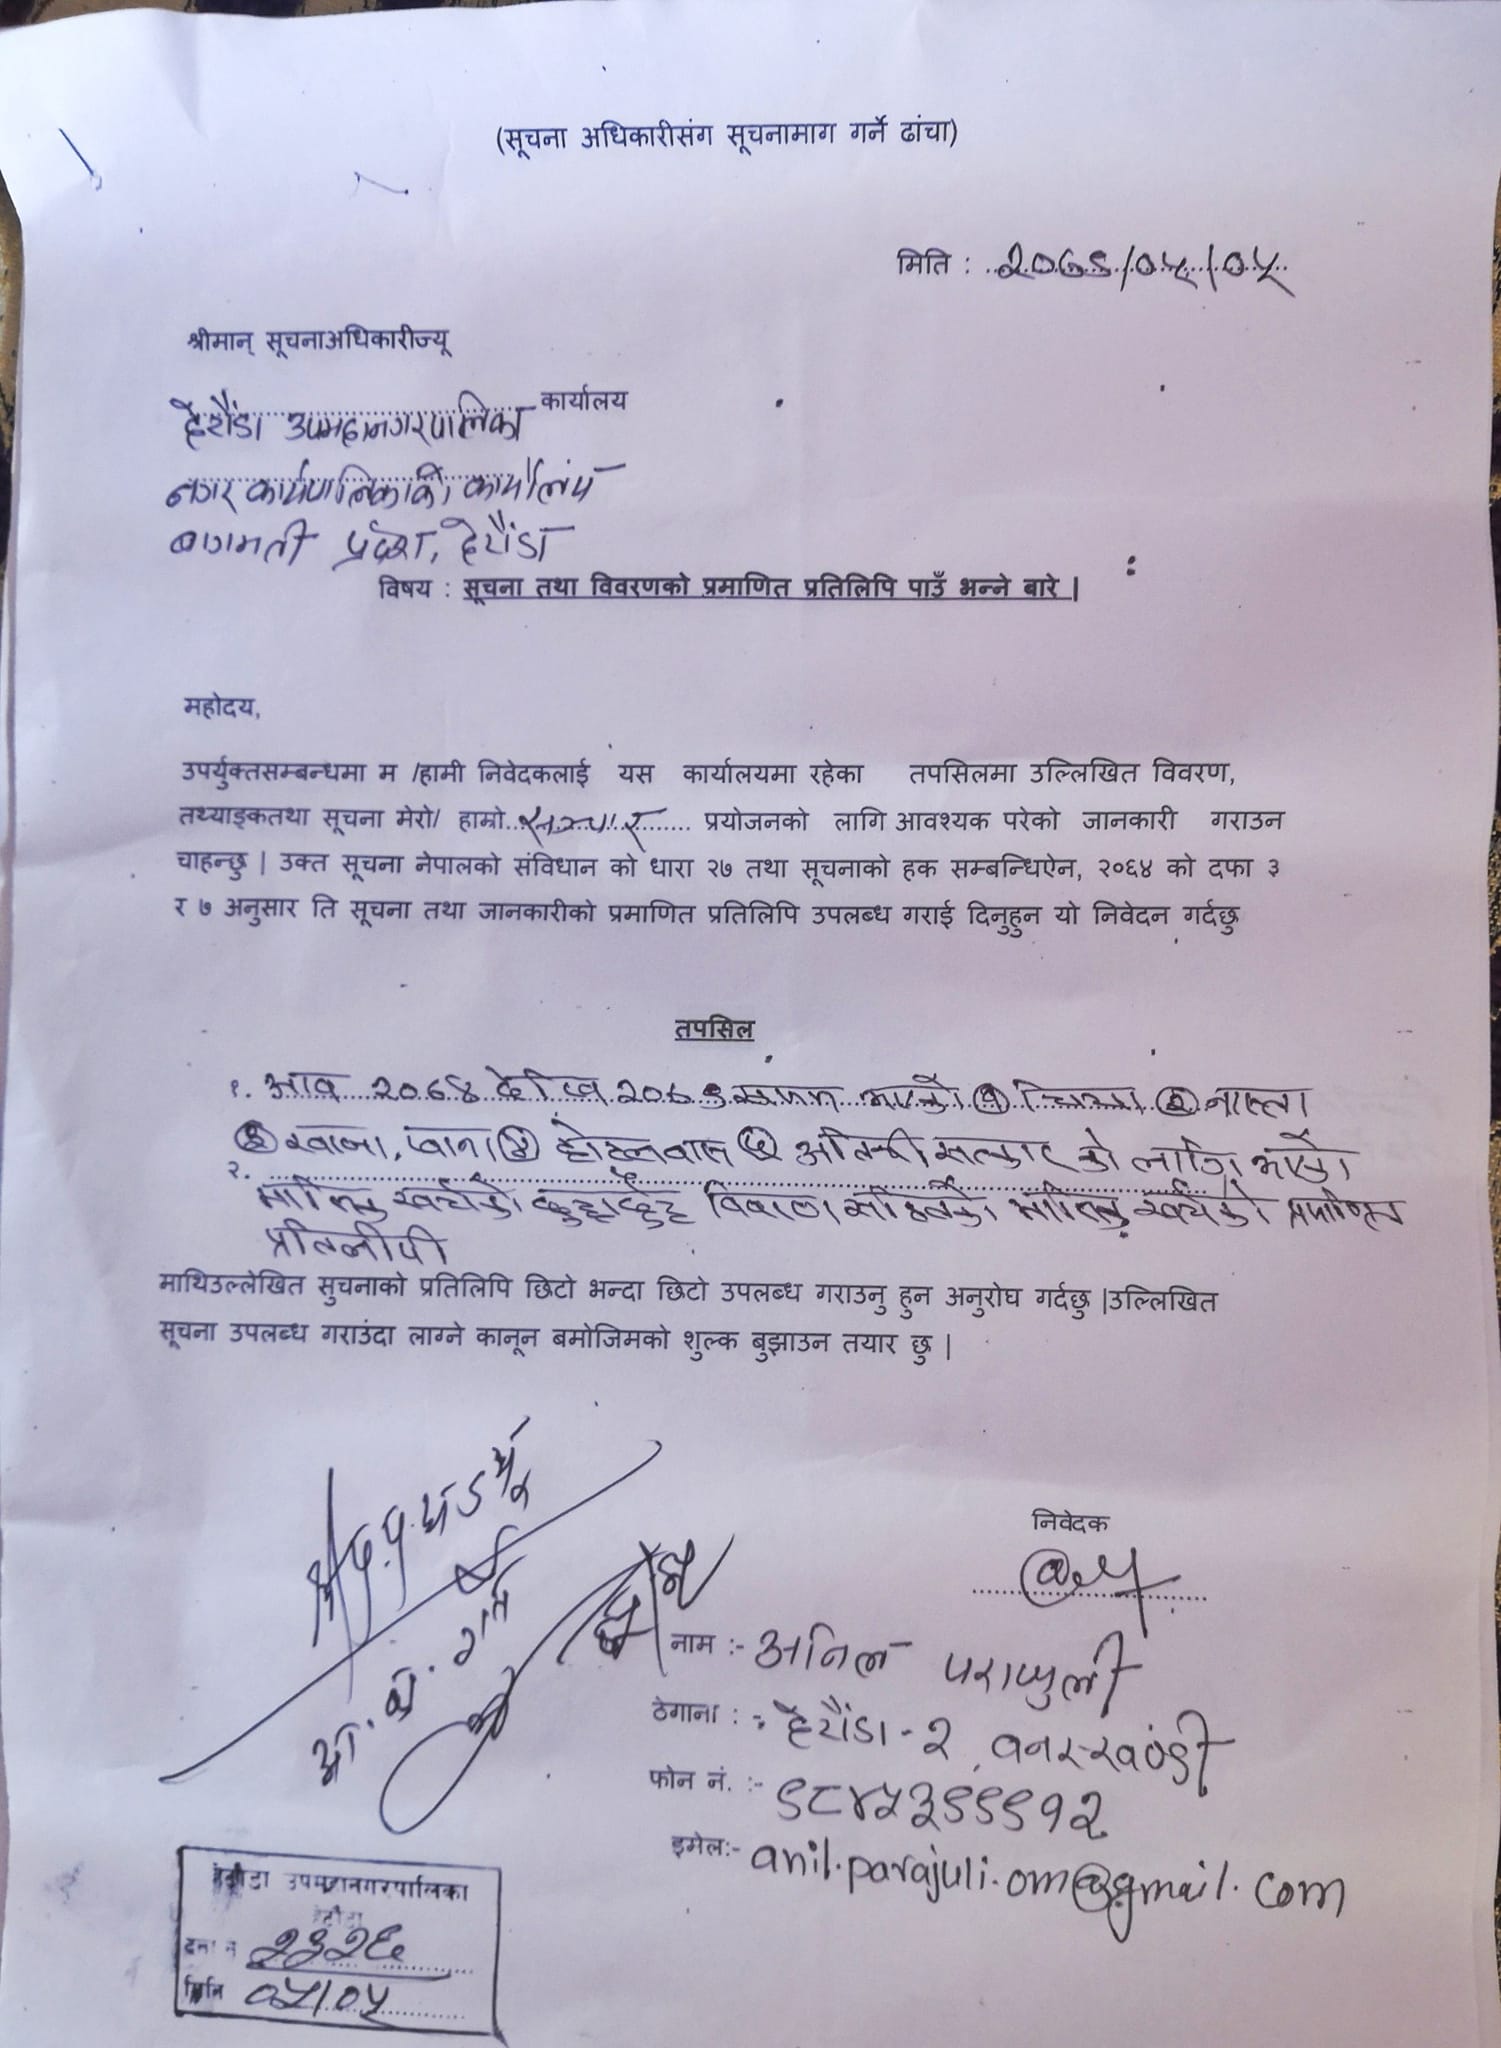 (सूचना अधिकारीसंग सूचनामाग गर्ने ढांचा)
मिति : २०७९/०५/०५
श्रीमान् सूचनाअधिकारीज्यू
हेटौंडा उपमहानगरपालिका कार्यालय
नगर कार्यपालिकाको कार्यालय
बागमती प्रदेश, हेटौंडा
विषय : सूचना तथा विवरणको प्रमाणित प्रतिलिपि पाउँ भन्ने बारे |
महोदय,
उपर्युक्तसम्बन्धमा म /हामी निवेदकलाई यस कार्यालयमा रहेका तपसिलमा उल्लिखित विवरण,
तथ्याङ्कतथा सूचना मेरो/ हाम्रो सञ्चार प्रयोजनको लागि आवश्यक परेको जानकारी गराउन
चाहन्छु | उक्त सूचना नेपालको संविधान को धारा २७ तथा सूचनाको हक सम्बन्धिऐन, २०६४ को दफा ३
र ७ अनुसार ति सूचना तथा जानकारीको प्रमाणित प्रतिलिपि उपलब्ध गराई दिनुहुन यो निवेदन गर्दछु
तपसिल
१. आव २०७४ देखि २०७९ सम्म भएको १ चिया २ नास्ता
३ खाजा, खाना ४ होटलवास ५ अतिथी सत्कार को लागि भएको
२. मासिक खर्चको छुट्टाछुट्टै विवरण सहितको मासिक खर्चको प्रमाणित
प्रतिलीपी
माथिउल्लेखित सुचनाको प्रतिलिपि छिटो भन्दा छिटो उपलब्ध गराउनु हुन अनुरोघ गर्दछु |उल्लिखित
सूचना उपलब्ध गराउंदा लाग्ने कानून बमोजिमको शुल्क बुझाउन तयार छु |
निवेदक
नाम :- अनिल पराजुली
ठेगाना : - हेटौंडा - २, वनस्खण्डी
फोन नं. :- ९८४५३९९९१२
इमेल:- anil.parajuli.om@gmail.com
हेटौंडा उपमहानगरपालिका
हेटौंडा
दर्ता नं २३२६
मिति ०५/०५